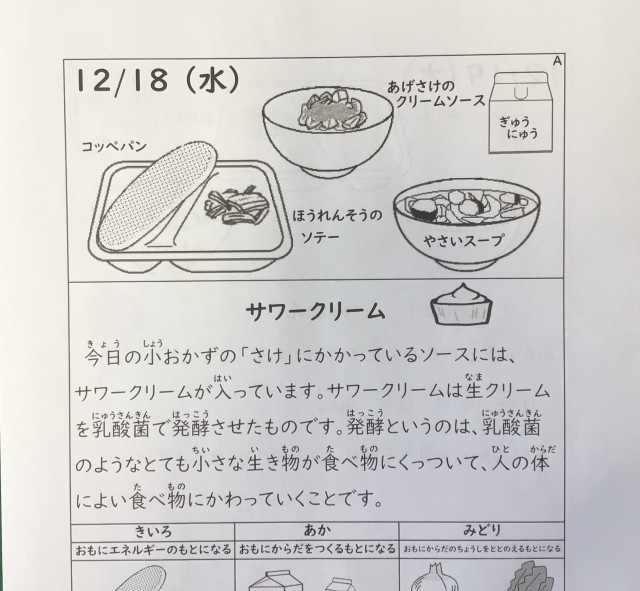 12/18（水）
A
あげさけの
クリームソース
ぎゅう
にゅう
コッペパン
ほうれんそうの
ソテー
やさいスープ
サワークリーム
今日の小おかずの「さけ」にかかっているソースには、
サワークリームが入っています。サワークリームは生クリーム
を乳酸菌で発酵させたものです。発酵というのは、乳酸菌
のようなとても小さな生き物が食べ物にくっついて、人の体
によい食べ物にかわっていくことです。
きいろ
あか
みどり
おもにエネルギーのもとになる
おもにからだをつくるもとになる
おもにからだのちょうしをととのえるもとになる